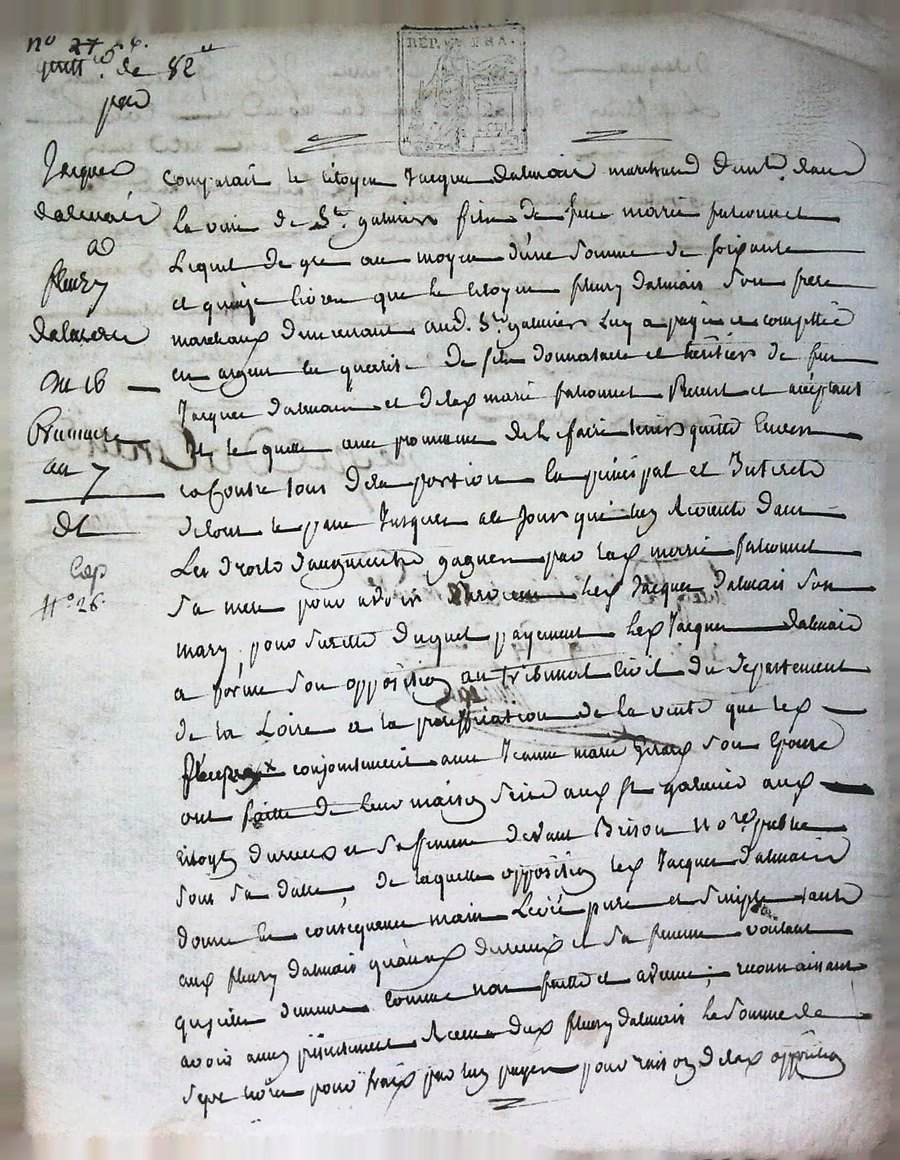 n° 27 26.
quitt.ce de 82ᵗᵗ
par
REP. FRA.
Jacques
dalmais
a
fleury
dalmais
du 16
Brumaire
an 7
dt
Cop
n° 26.
Comparait le citoyen Jacque dalmais marchand demt. dans
la ville de St. galmier fils de feue marie falconnet
Lequel de gre au moyen d'une somme de soixante
et quinze livres que le citoyen fleury dalmais son frere
marchand demeurant aud. St. galmier luy a payé et comptée
en argent en qualité de fils donnataire et héritier de feu
Jacques dalmais et de lad marie falconnet present et acceptant
le quitte avec promesse de le faire tenir quitte envers
et contre tous de la portion en principal et Interets
de tout le passé Jusques a ce Jour qui luy revient dans
Les droits d'augments gagnes par lad marie falconnet
sa mere pour avoir survecu led Jacques dalmais son
mary, pour sureté duquel payement led Jacques dalmais
a formé son opposition au tribunal Civil du departement
de la Loire a la ratiffication de la vente que led
conjointement avec Jeanne marie Girard son Epouse
ont faitte de leur maison scise aud St galmier aux
citoyens dureux et sa femme devant Brison no.re public
sous sa datte, de laquelle opposition led Jacques dalmais
donne en consequence main Levée pure et simple tant
aud fleury dalmais qu'aud dureux et sa femme voulant
qu'elle demeure comme non faitte et avenue; reconnaissant
avoir aussy présentement Receu dud fleury dalmais la somme de
sept livres pour frais par luy payes pour raison de lad opposition